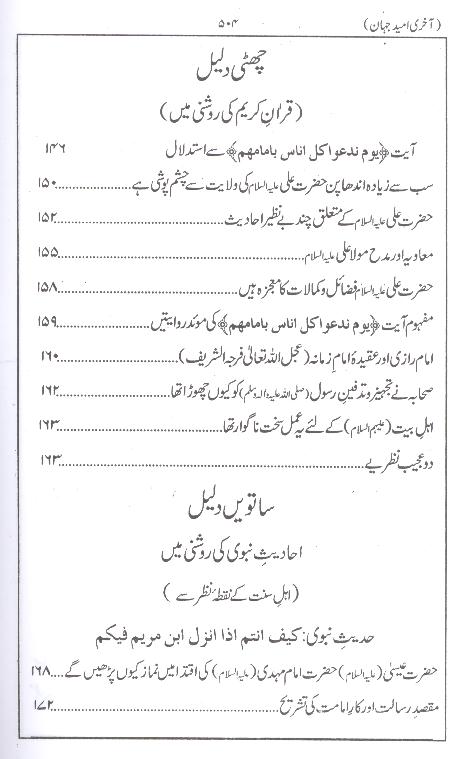 (آخری امید جہان) ۵۰۴
چھٹی دلیل
(قرآنِ کریم کی روشنی میں)
آیت ﴿یوم ندعوا کل اناس بامامهم﴾ سے استدلال ۱۴۶
سب سے زیادہ اندھا پن حضرت علی علیہ السلام کی ولایت سے چشم پوشی ہے ........ ۱۵۰
حضرت علی علیہ السلام کے متعلق چند بے نظیر احادیث ........ ۱۵۲
معاویہ اور مدح مولا علی علیہ السلام ........ ۱۵۵
حضرت علی علیہ السلام فضائل و کمالات کا معجزہ ہیں ........ ۱۵۸
مفہوم آیت ﴿یوم ندعوا کل اناس بامامهم﴾ کی موئد روایتیں ۱۵۹
امام رازی اور عقیدۂ امامِ زمانہ (عجل اللہ تعالیٰ فرجہ الشریف) ........ ۱۶۰
صحابہ نے تجہیز و تدفینِ رسول (صلی اللہ علیہ و آلہ وسلم) کو کیوں چھوڑا تھا ........ ۱۶۲
اہلِ بیت (علیہم السلام) کے لئے یہ عمل سخت ناگوار تھا ........ ۱۶۳
دو عجیب نظریے ........ ۱۶۳
ساتویں دلیل
احادیثِ نبوی کی روشنی میں
(اہلِ سنت کے نقطۂ نظر سے)
حدیثِ نبوی: کیف انتم اذا انزل ابن مریم فیکم
حضرت عیسیٰ (علیہ السلام) حضرت امام مہدی (علیہ السلام) کی اقتدا میں نماز کیوں پڑھیں گے .... ۱۶۸
مقصدِ رسالت اور کارِ امامت کی تشریح ........ ۱۷۲